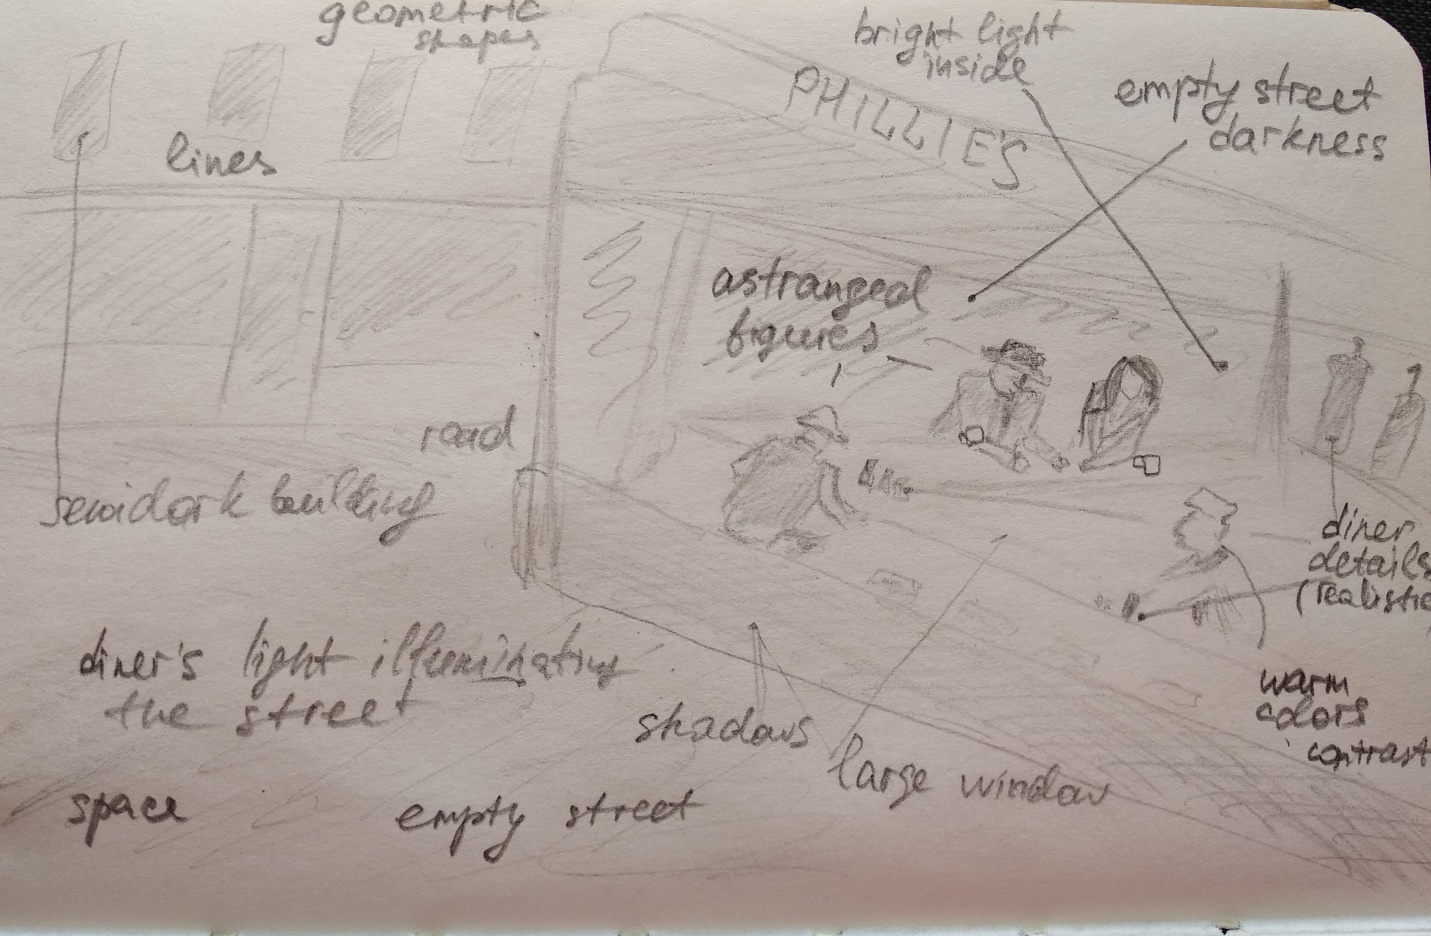 geometric
shapes
bright light
inside
PHILLIE'S
empty street
darkness
lines
astranged
figures
road
semidark building
diner
details
(realistic
diner's light illuminating
the street
shadows
warm
colors
contrast
large window
space
empty street